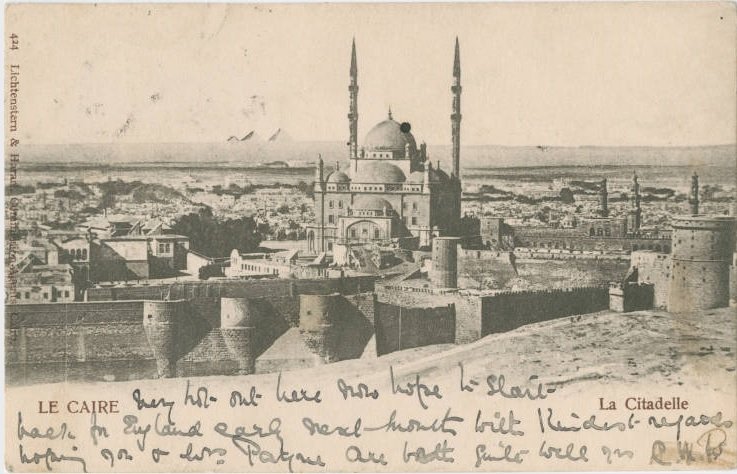 424 Lichtenstern & Harari,
LE CAIRE
La Citadelle
very hot out here now hope to start
back for England early next month with Kindest regards
hoping you & Mrs. Payne are both quite well yrs